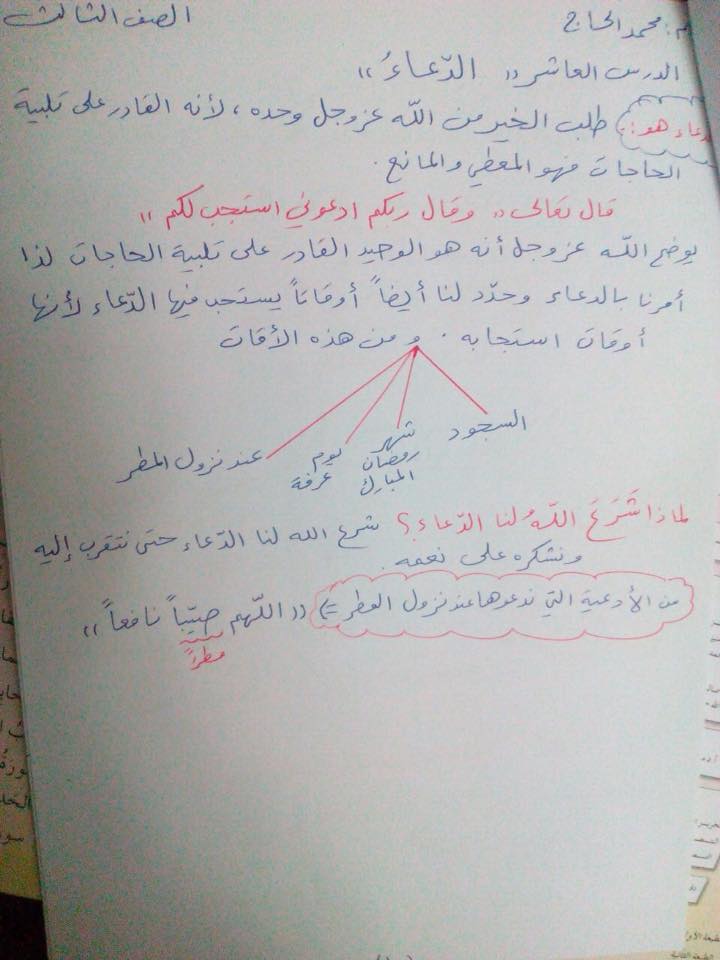 م: محمد الحاج الصف الثالث
الدرس العاشر " الدّعاءُ "
دعاء هو: طلب الخير من الله عز وجل وحده ، لأنه القادر على تلبية
الحاجات فهو المعطي والمانع .
قال تعالى " وقال ربكم ادعوني استجب لكم "
يوضح الله عز وجل أنه هو الوحيد القادر على تلبية الحاجات لذا
أمرنا بالدعاء وحدّد لنا أيضاً أوقاتاً يستحب فيها الدّعاء لأنها
أوقات استجابه . و من هذه الأقات
السجود شهر رمضان المبارك يوم عرفة عند نزول المطر
لماذا شَرَعَ اللهُ لنا الدّعاء ؟ شرع الله لنا الدّعاء حتى نتقرب إليه
ونشكره على نعمه .
من الأدعية التي ندعوها عند نزول المطر => " اللّهم صيّباً نافعاً "
مطراً